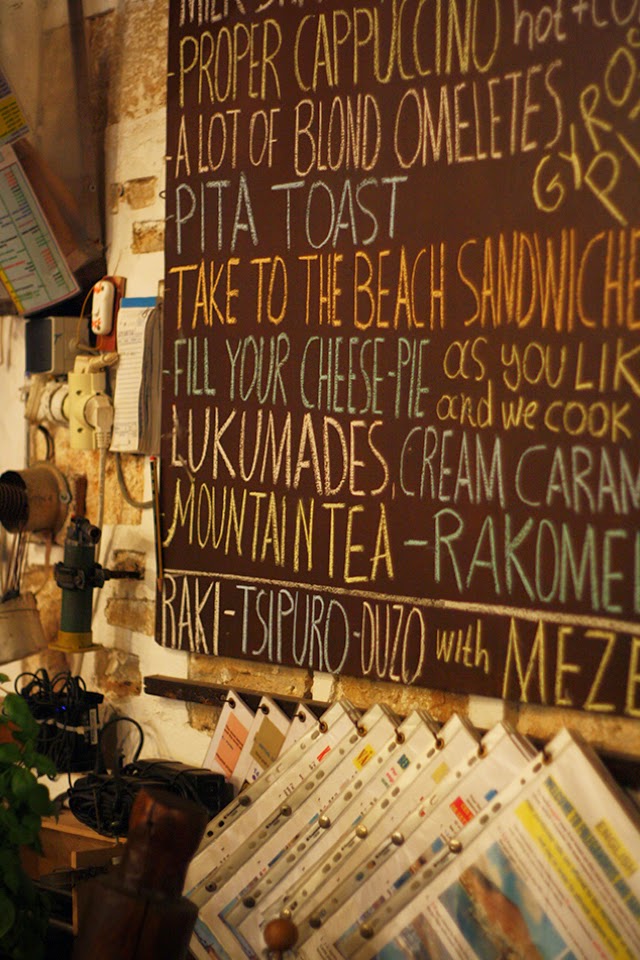 MILK
-PROPER CAPPUCCINO hot+CO
-A LOT OF BLOND OMELETES
GYRO
PI
PITA TOAST
TAKE TO THE BEACH SANDWICHE
-FILL YOUR CHEESE-PIE as you LIK
and we cook
LUKUMADES, CREAM CARAM
MOUNTAIN TEA -RAKOME
RAKI-TSIPURO-OUZO with MEZE